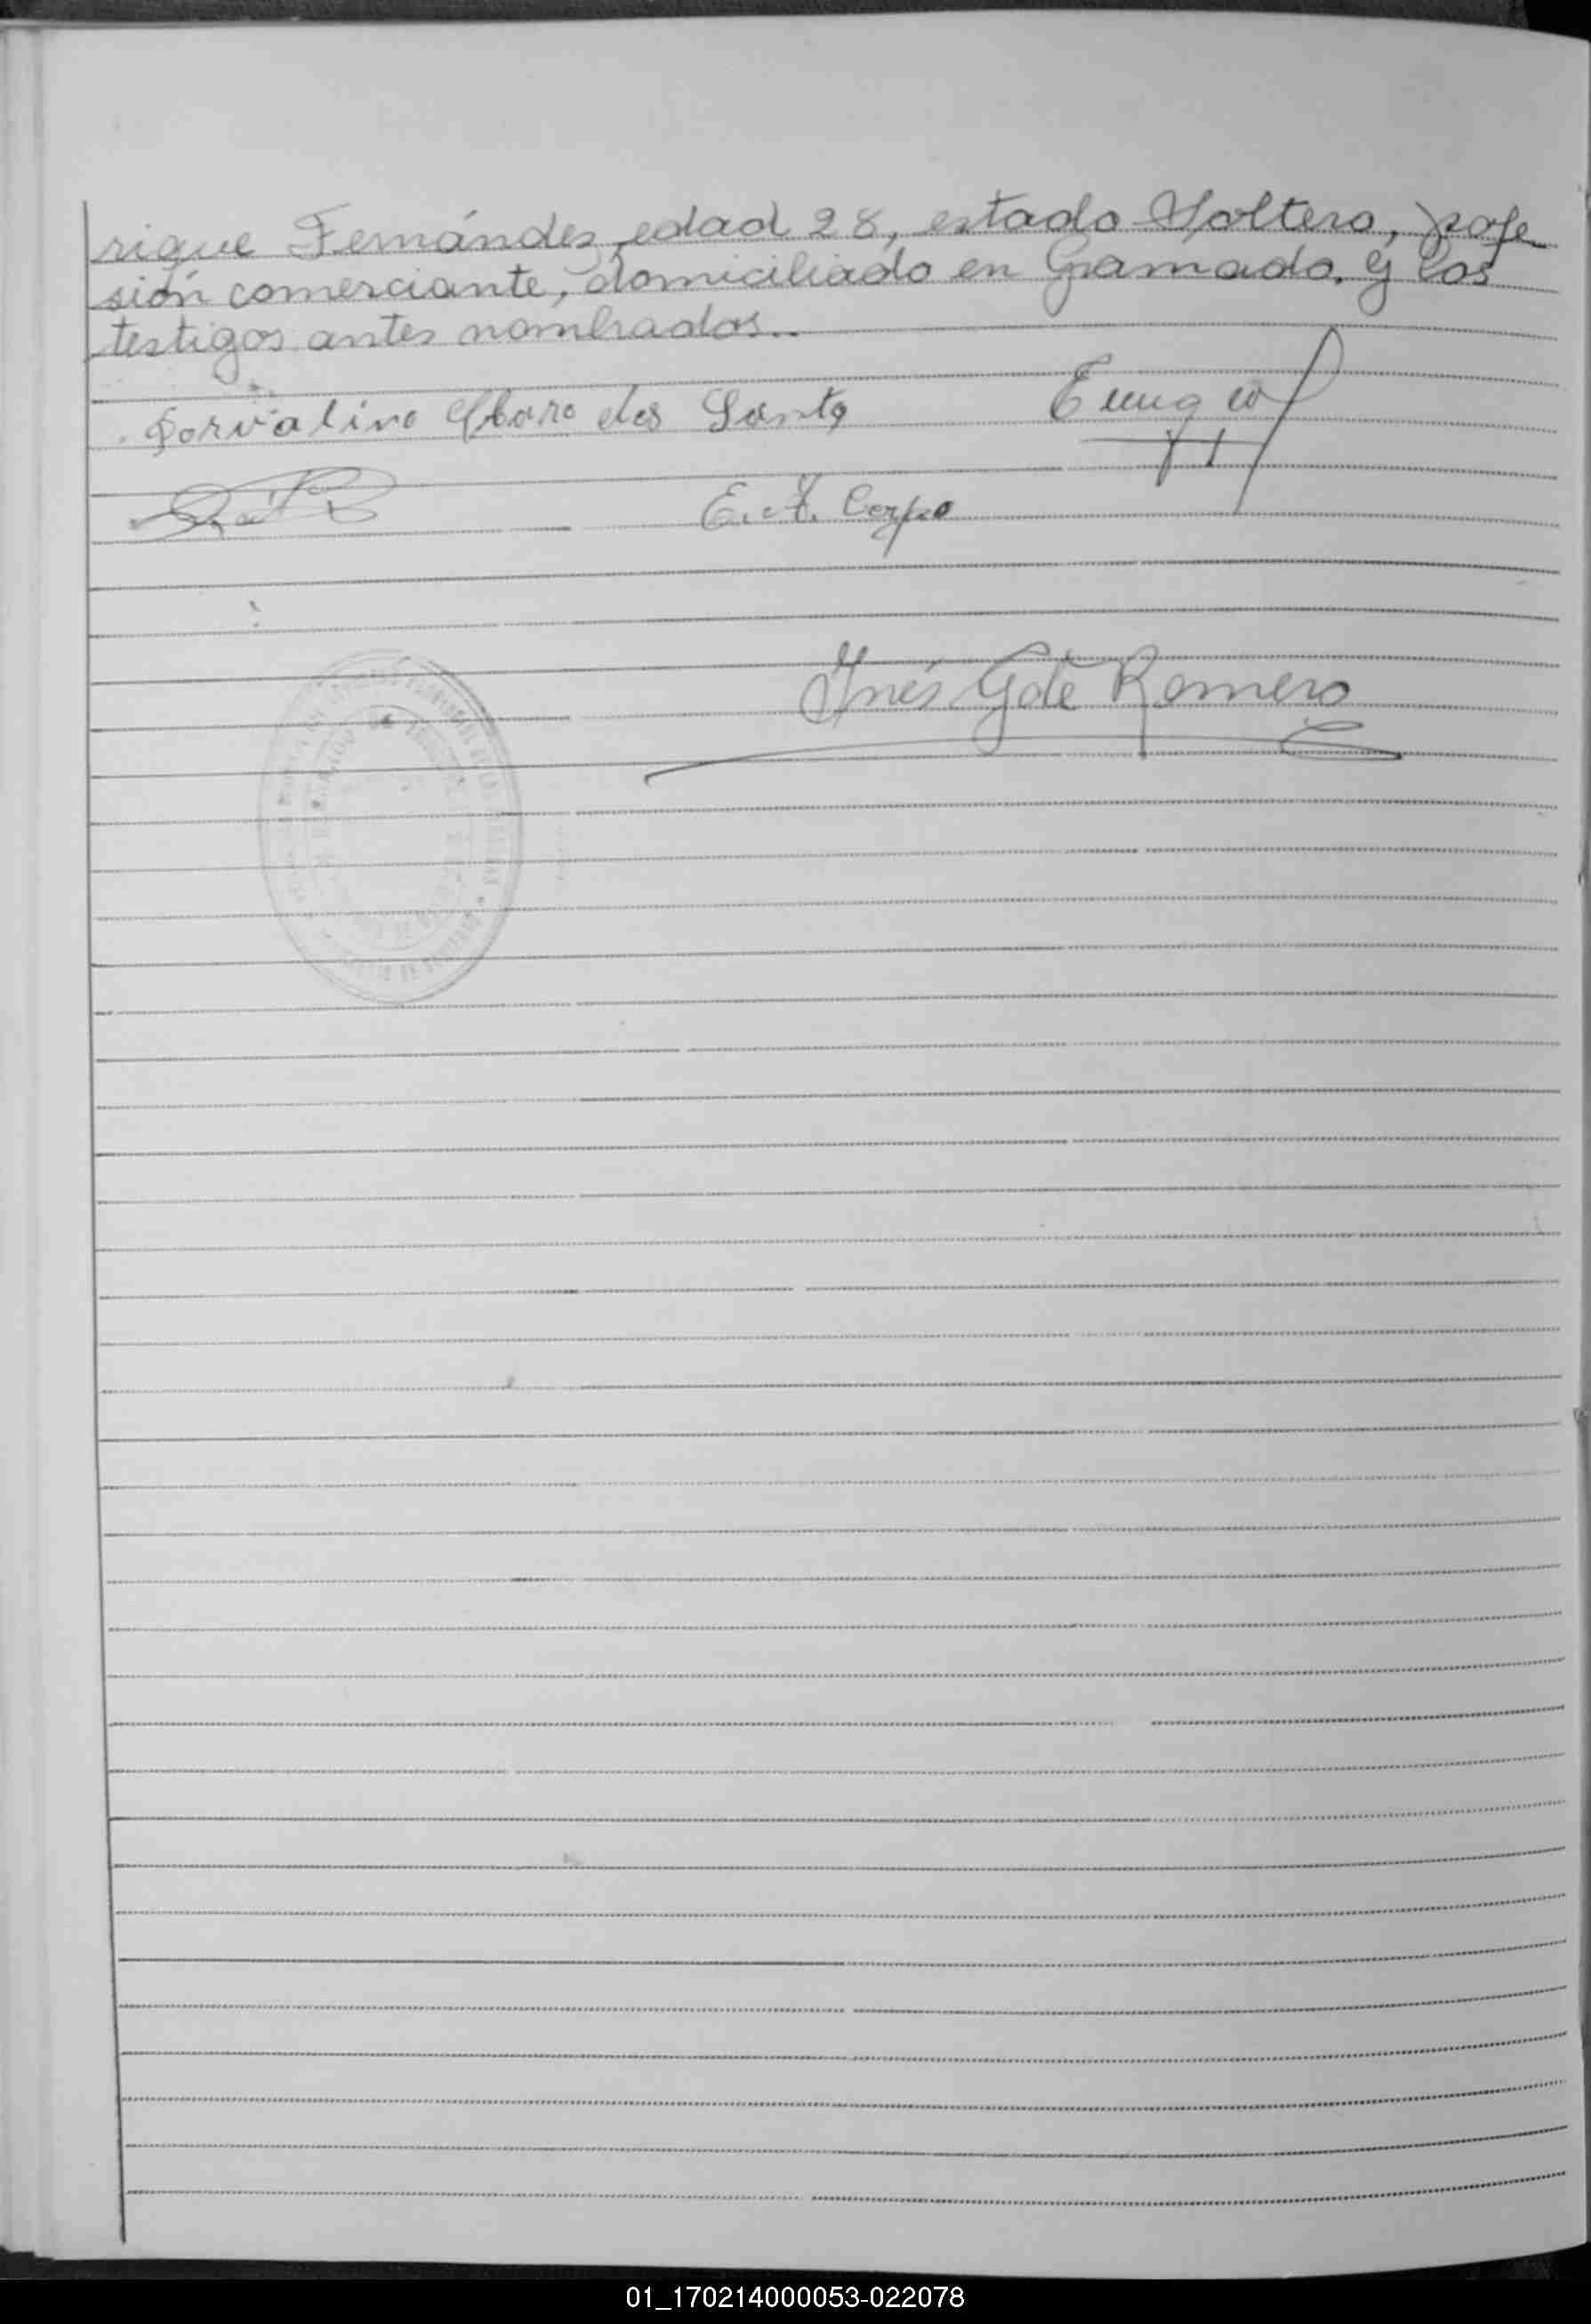 rique Fernández, edad 28, estado Soltero, profe
sión comerciante, domiciliado en Gramado, y los
testigos antes nombrados..
Dorvalino dos Santo
E. A. Cerpa
Inés G. de Romero
01_170214000053-022078